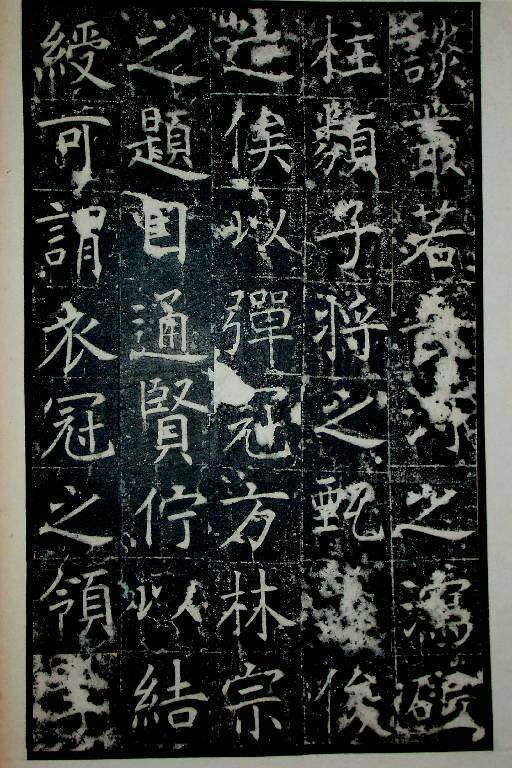 談叢若河之瀉
柱類子將之甄俊
造俟以彈冠方林宗
之題目通賢佇以結
綬可謂衣冠之領